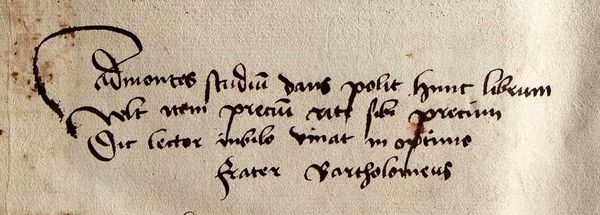 Admontes studiū dans polit hunc librum
Vult item preciū sibi precium
Dic lector iubilo vinat in optimo
frater Bartholomeus